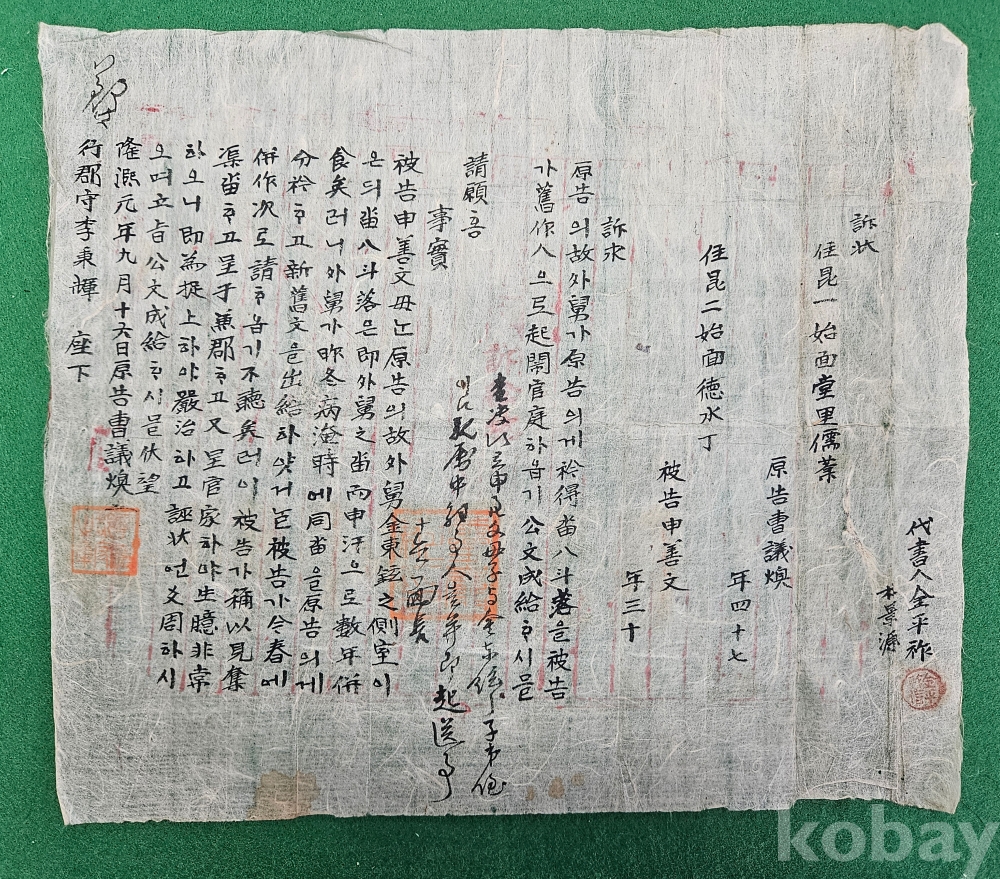 訴狀
住昆一始面堂里儒業
原告曺議煥
年四十七
住昆二始面德水丁
被告申善文
年三十
訴求
原告의故外舅가原告의게衿得畓八斗落을被告
가舊作人으로起鬧官庭하읍기公文成給ᄒᆞ시믈
請願홈
事實
被告申善文母난原告의故外舅金東鉉之側室이
온의畓八斗落은即外舅之畓而申汗으로数年併
食矣러니外舅가昨冬病淹時에同畓을原告의게
分衿ᄒᆞ고新舊文을出給하얏거든被告가今春에
併作次로請ᄒᆞ읍기不聽矣러이被告가稱以見奪
渠畓ᄒᆞ고呈于兼郡ᄒᆞ고又呈官家하야生臆非常
하오니即為捉上하야嚴治하고誣狀언爻周하시
오며立旨公文成給ᄒᆞ시믈伏望
隆熙元年九月十六日原告曺議煥
行郡守李秉輝 座下
代書人金平祚
本景源
起送事
面長
kobay